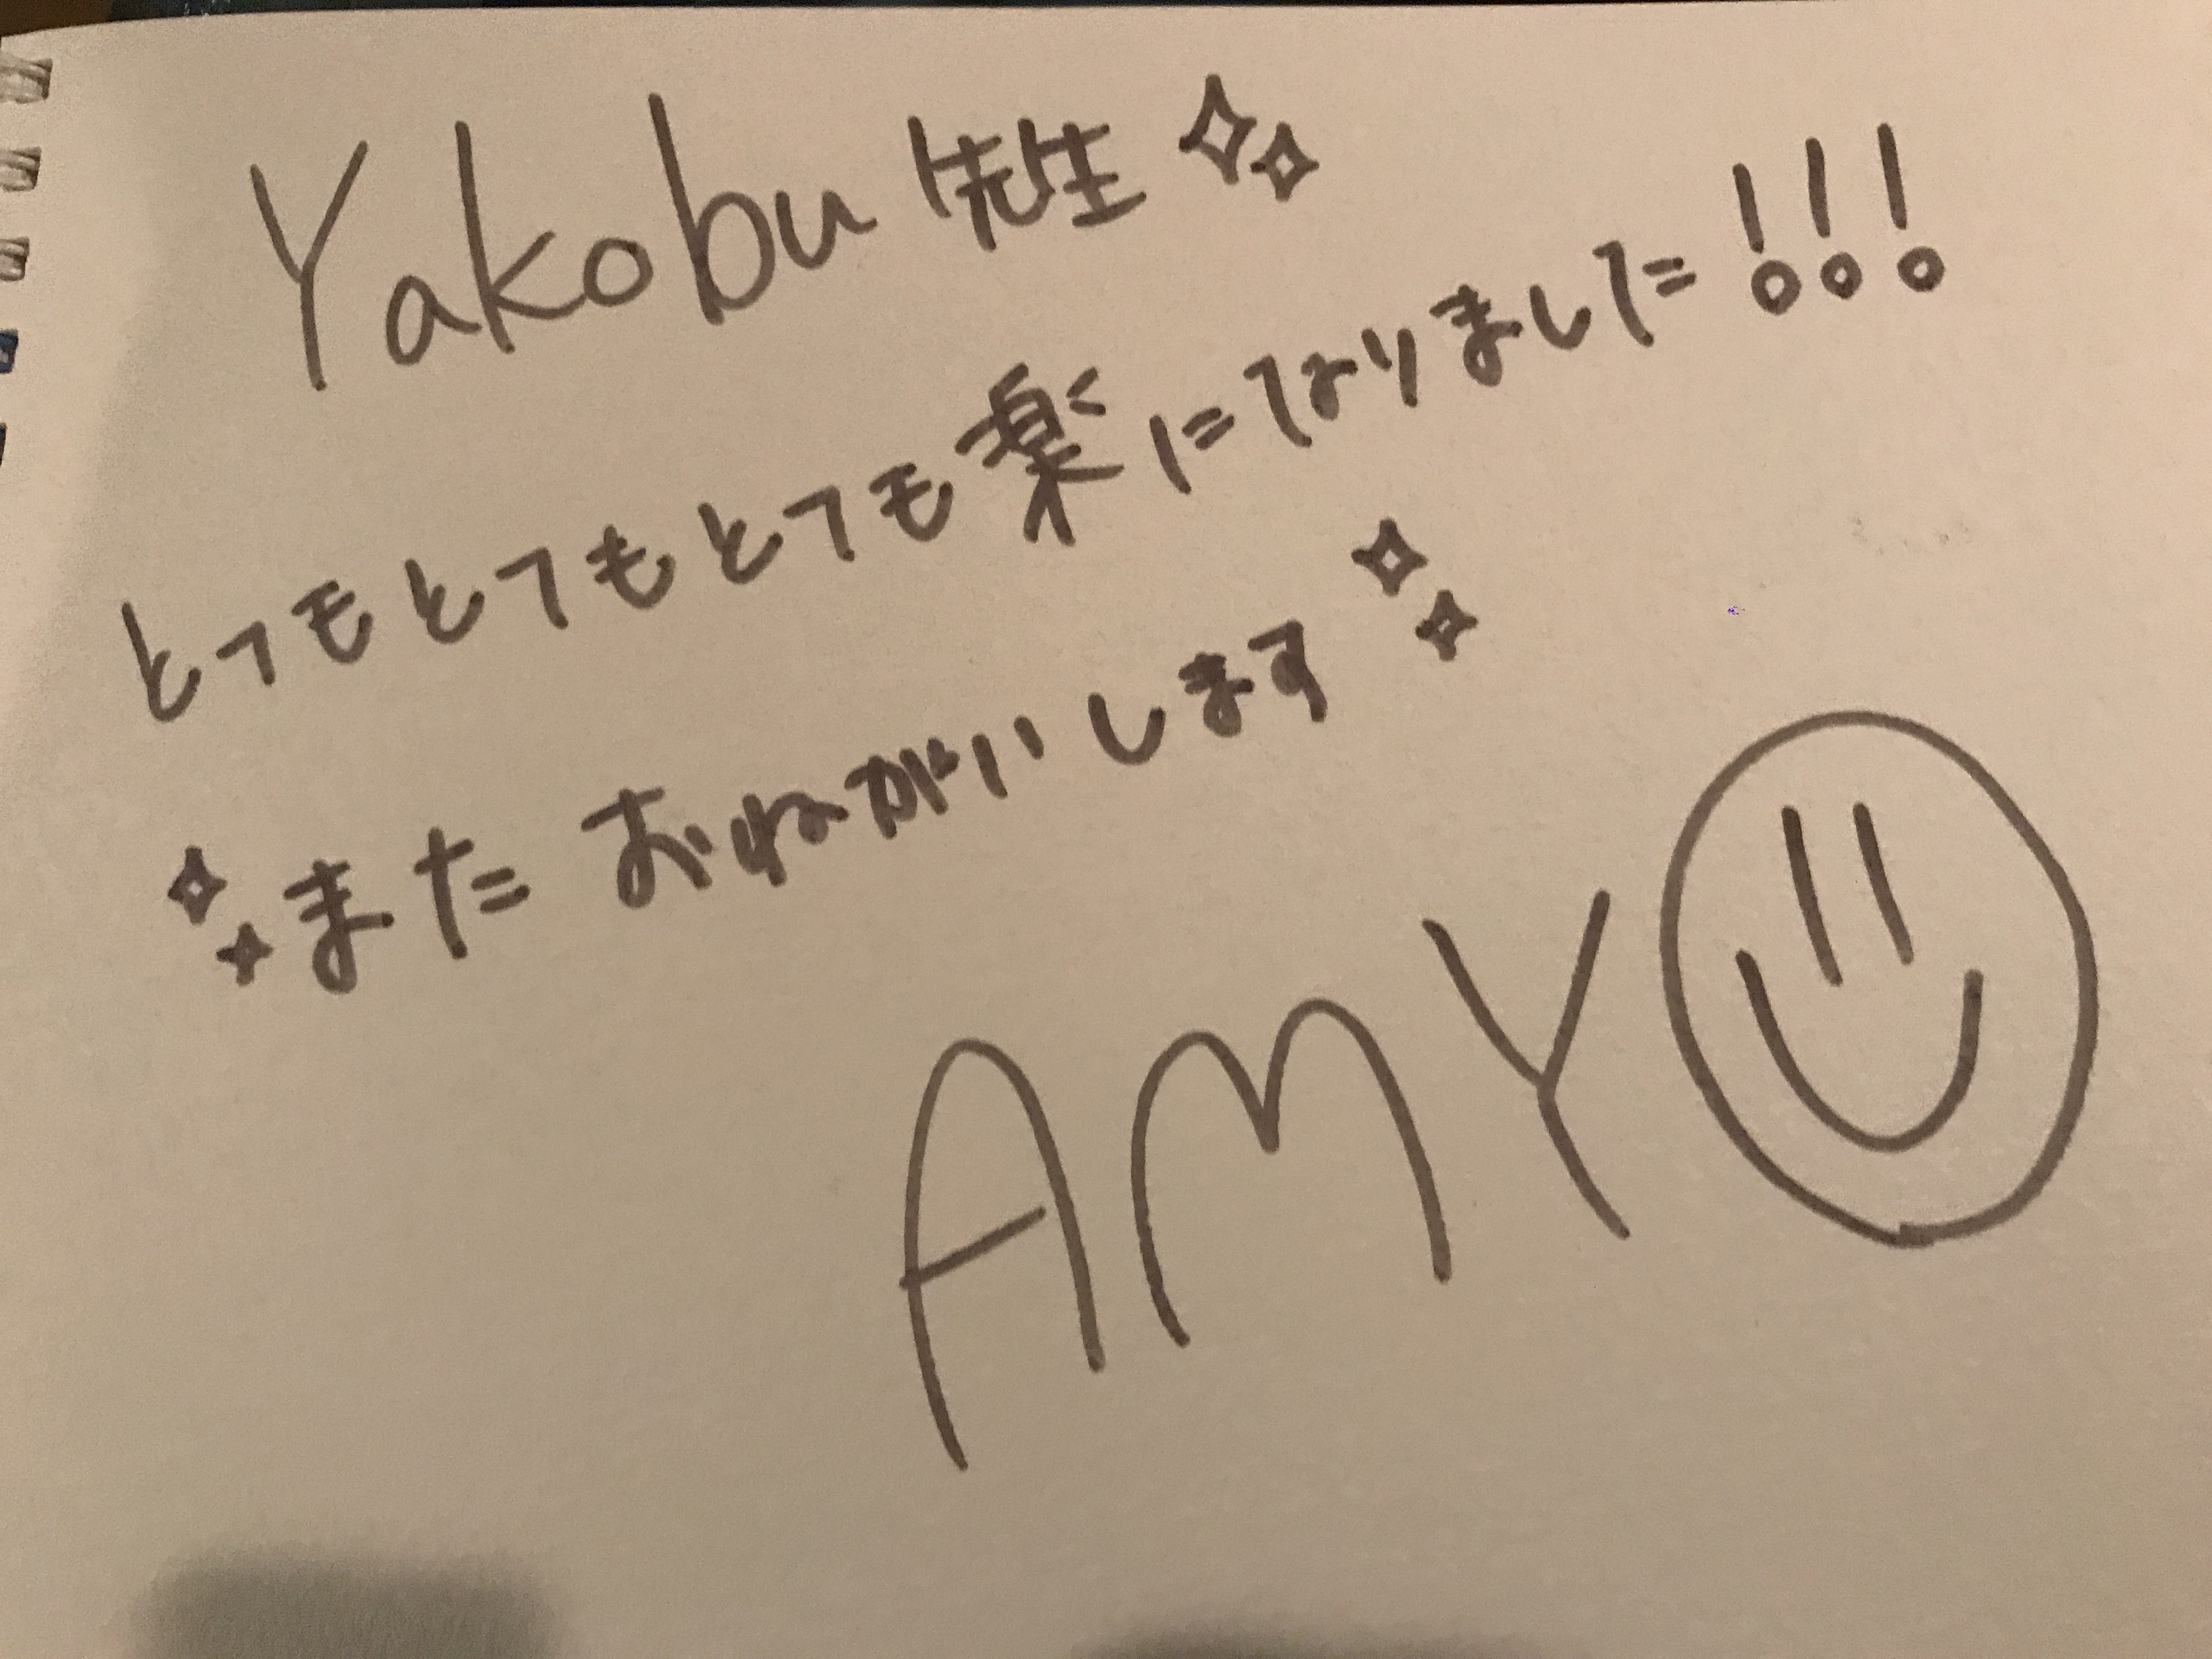 Yakobu先生
とてもとてもとても楽になりました!!!
またおねがいします
AMY